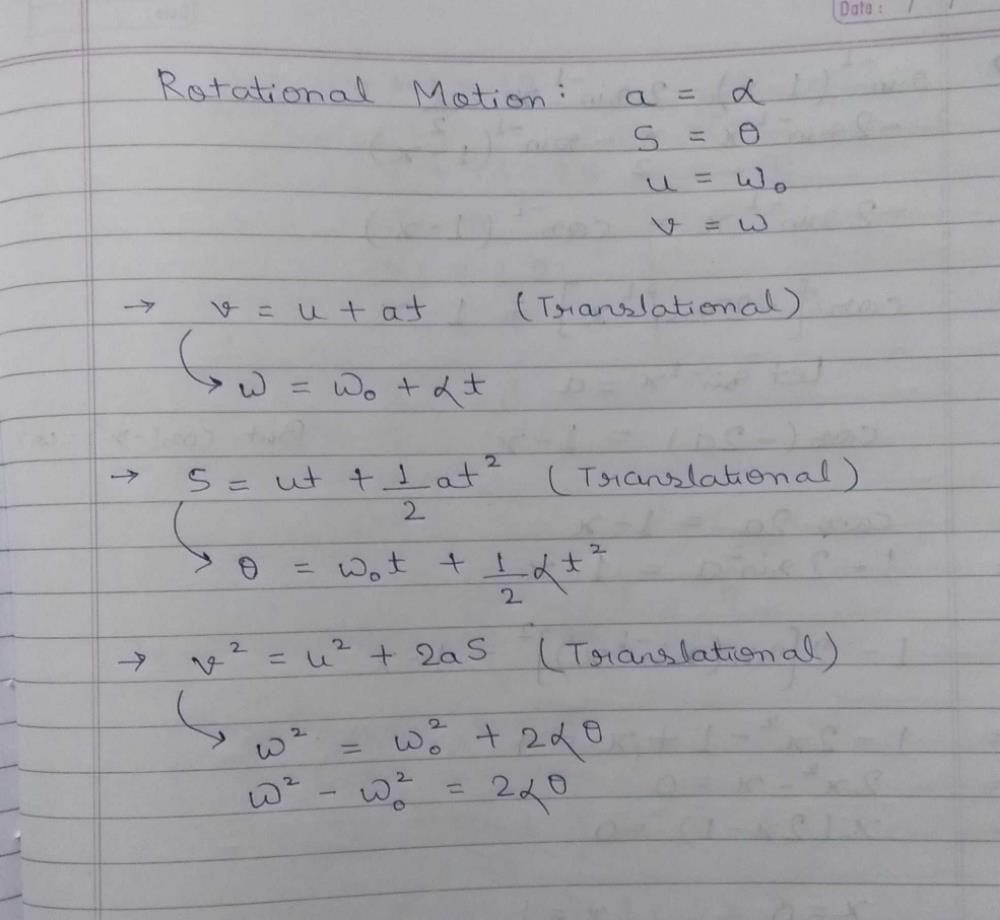 Date : / /
Rotational Motion : a = α
S = θ
u = ω₀
v = ω
→ v = u + at (Translational)
ω = ω₀ + αt
→ S = ut + 1/2 at² (Translational)
θ = ω₀t + 1/2 αt²
→ v² = u² + 2aS (Translational)
ω² = ω₀² + 2αθ
ω² - ω₀² = 2αθ